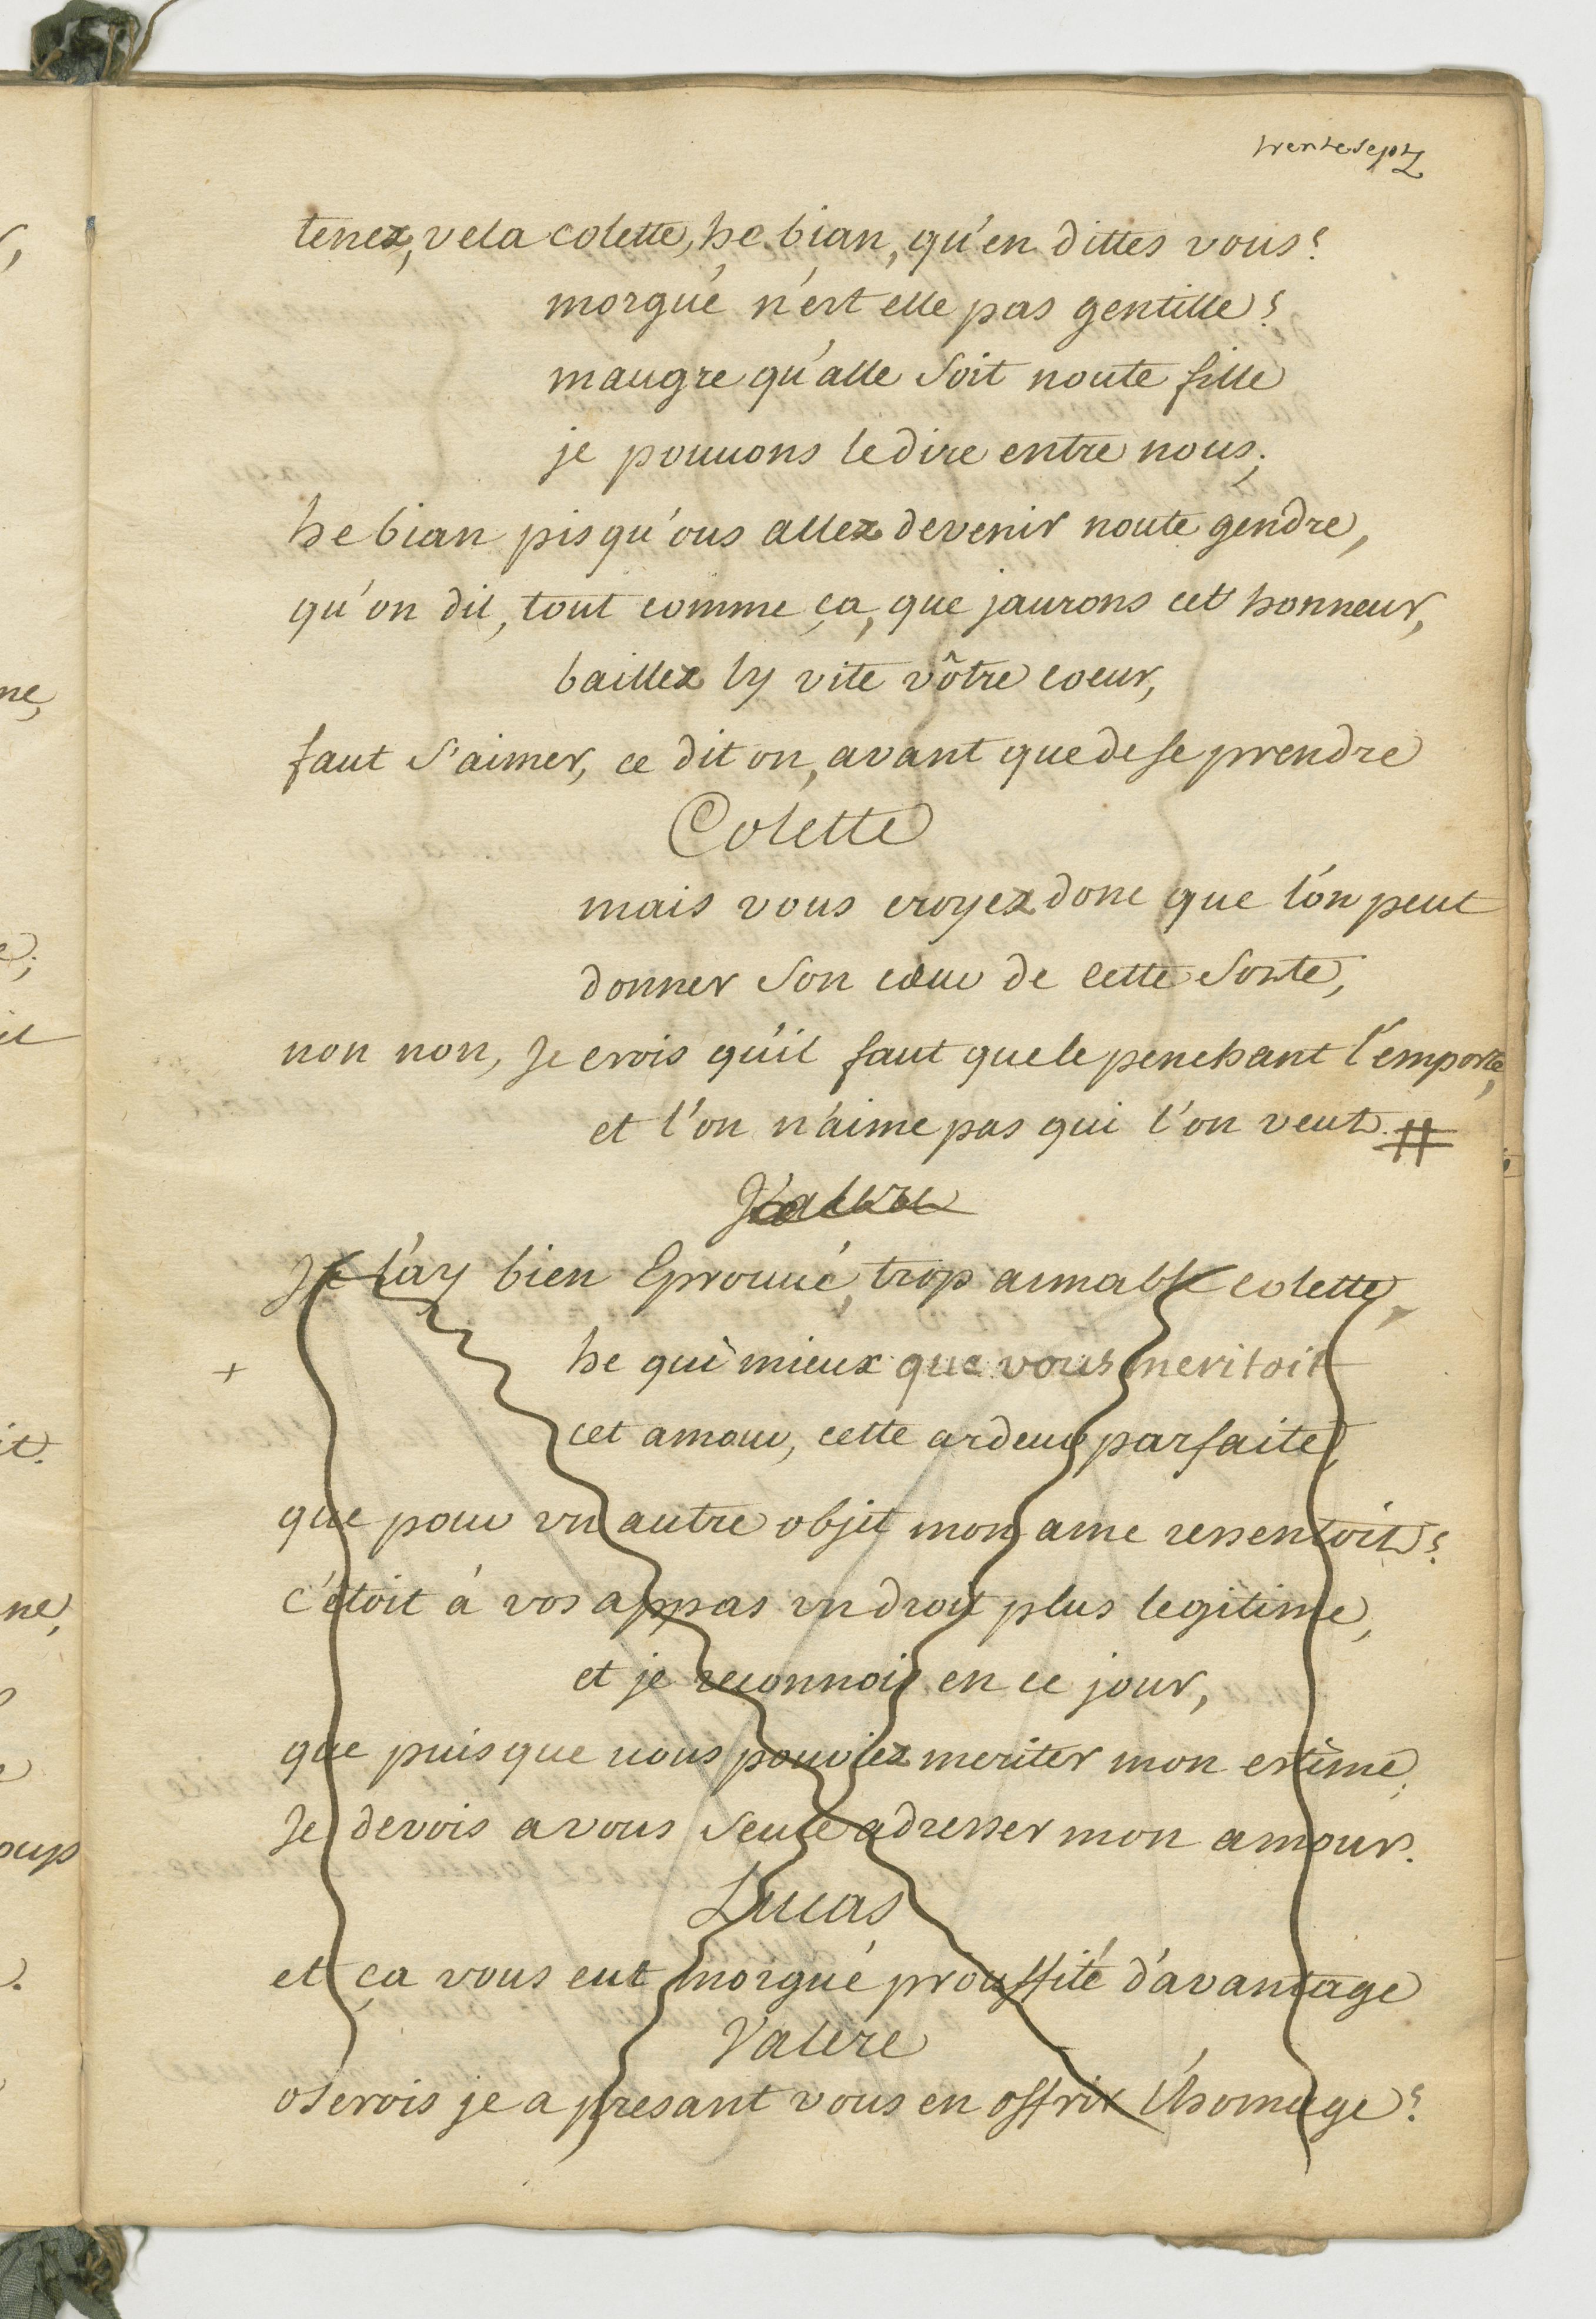 trente sept
tenez, vela colette, he bian, qu'en dittes vous?
morgué n'est elle pas gentille?
maugre qu'alle soit noute fille
je pouuons le dire entre nous;
he bian pisqu'ous allez devenir noute gendre,
qu'on dit, tout comme ça, que jaurons cet honneur,
baillez ly vite vôtre coeur,
faut s'aimer, ce dit on, avant que de se prendre
Colette
mais vous croyez donc que l'on peut
donner son cœur de cette sorte,
non non, Je crois qu'il faut que le penchant l'emporte,
et l'on n'aime pas qui l'on veut. #
Valere
Je l'ay bien Eprouué, trop aimable colette,
+ he qui mieux que vous meritoit
cet amour, cette ardeur parfaite,
que pour vn autre objet mon ame ressentoit?
c'étoit à vos appas vn droit plus legitime,
et je reconnois en ce jour,
que puisque vous pouviez meriter mon estime,
Je devois a vous seule adresser mon amour.
Lucas
et ça vous eut morgué prouffité d'avantage
Valere
oserois je a presant vous en offrir l'homage?
ne,
it.
ne,
oups